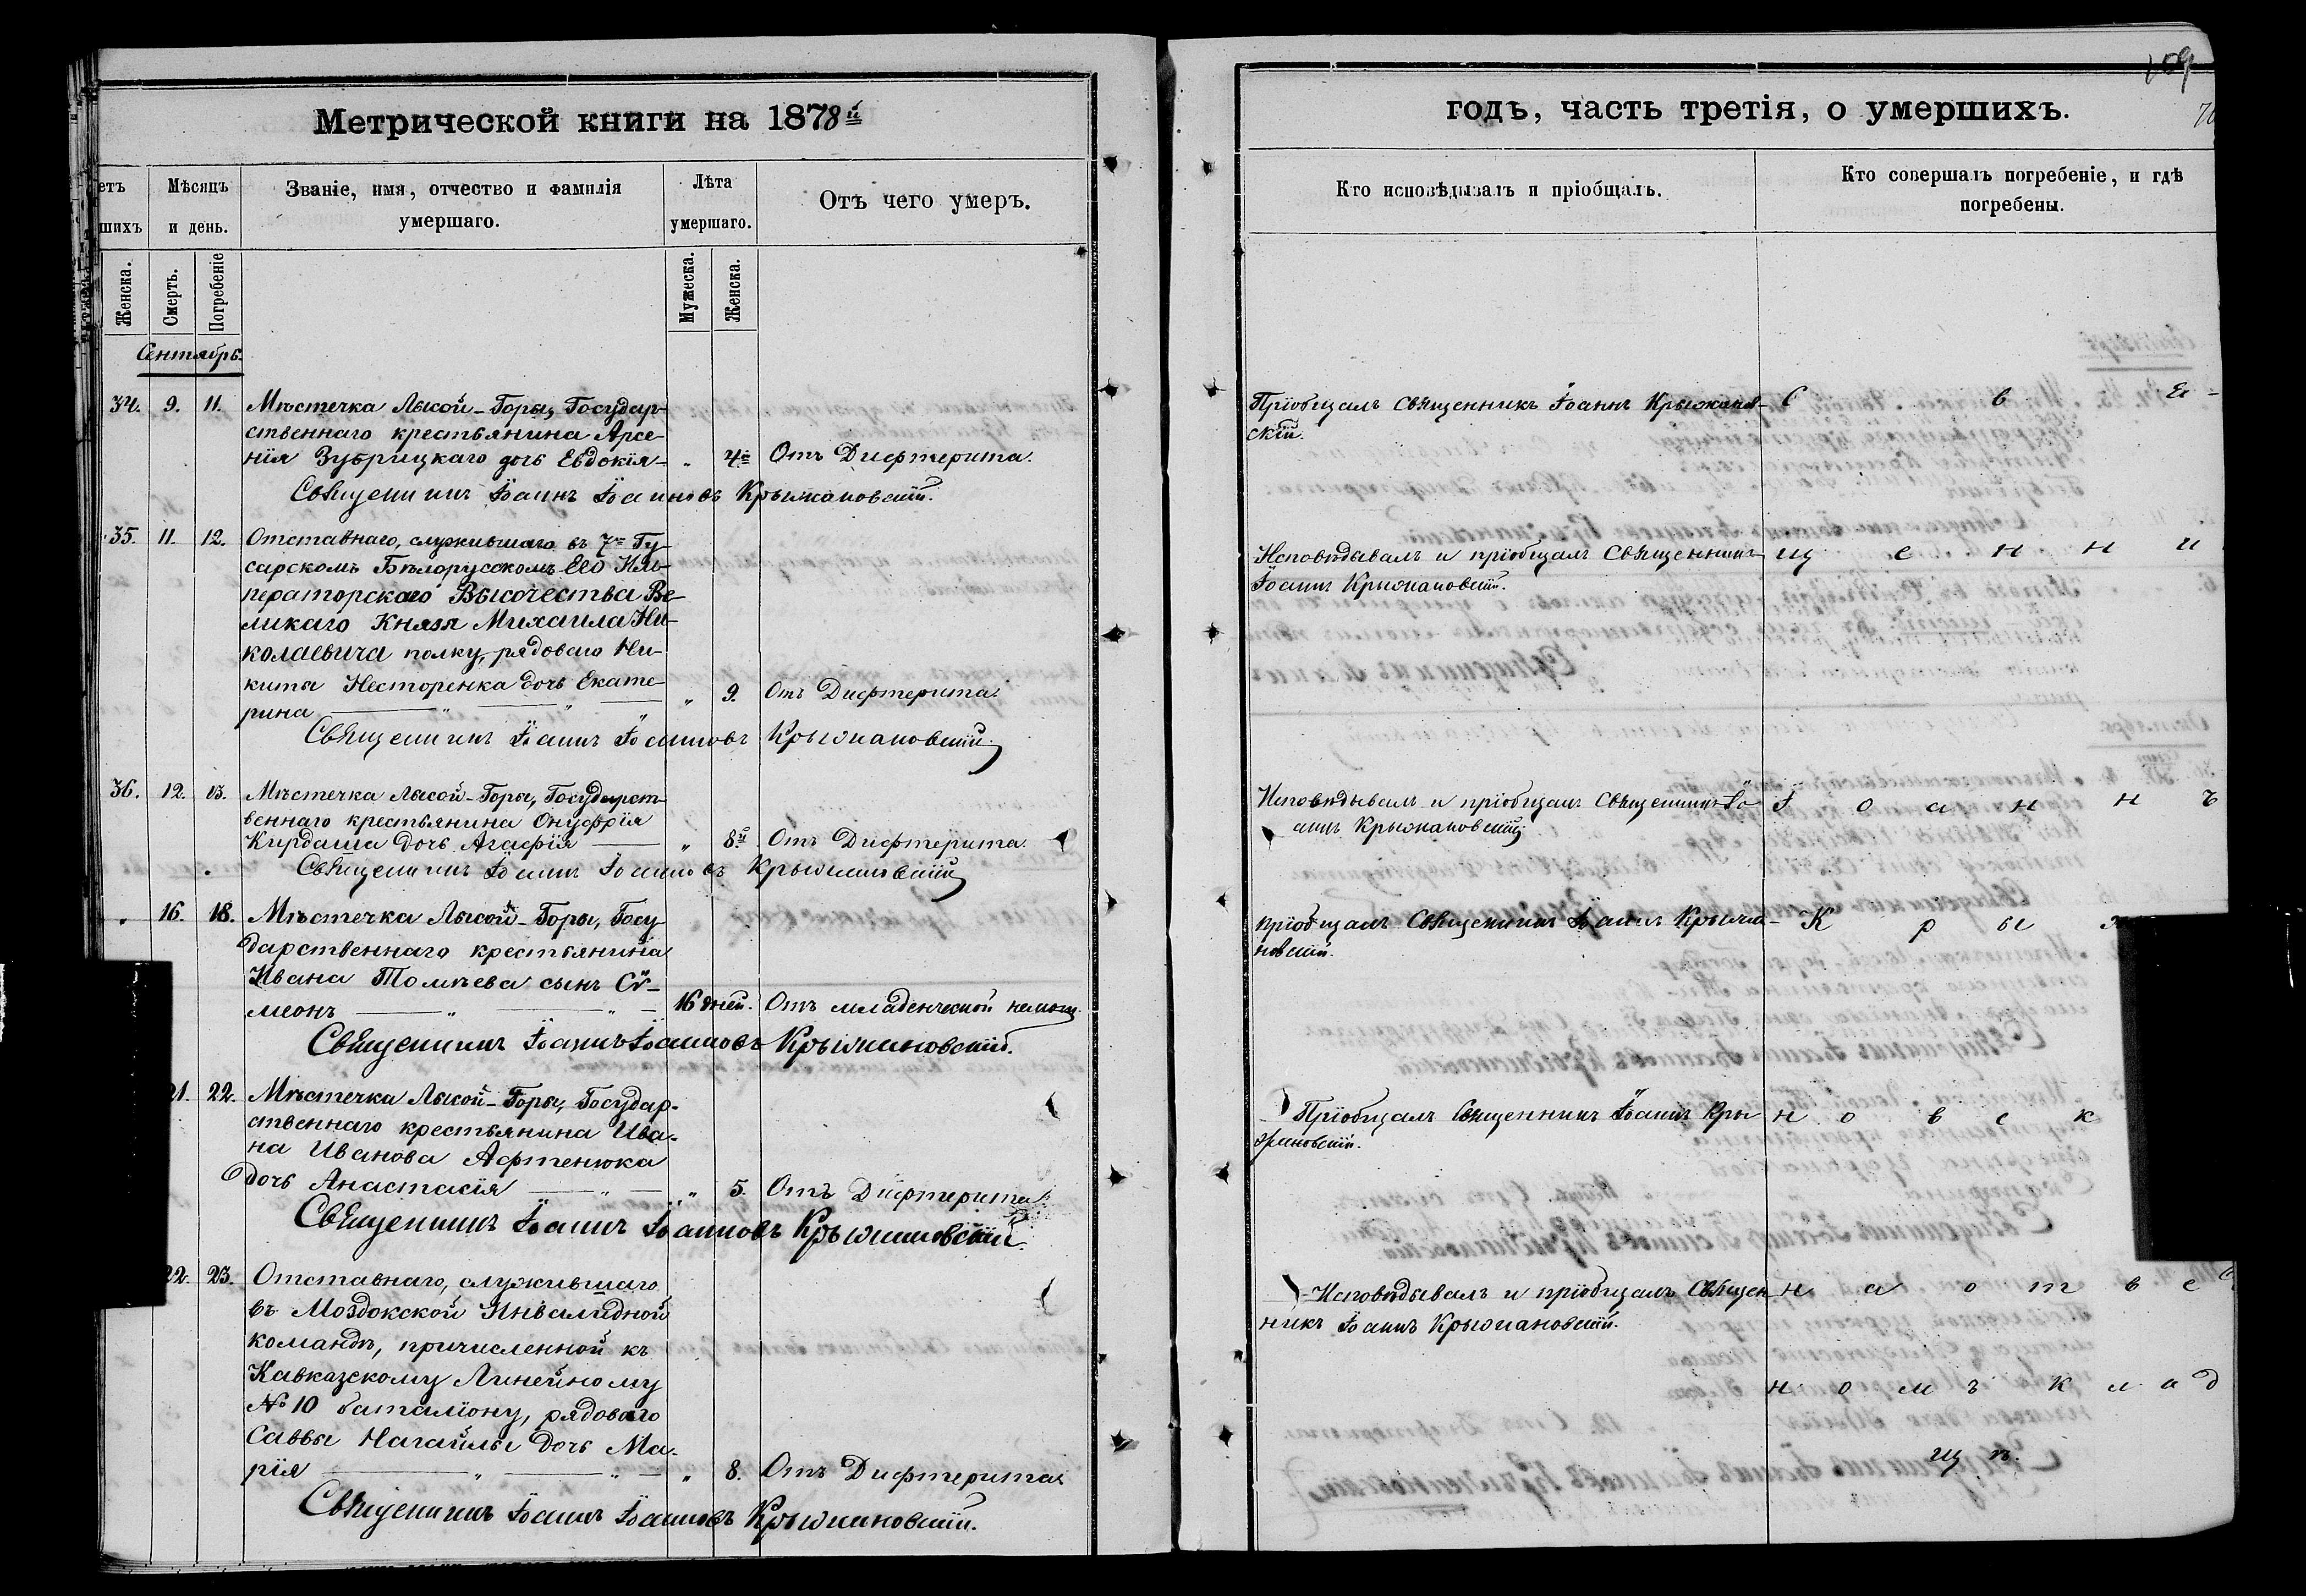 Метрической книги на 1878й
етъ
шихъ
Мѣсяцъ
и день.
Званіе, имя, отчество и фамилія
умершаго.
Лѣта
умершаго.
Отъ чего умеръ.
Женска.
Смерть.
Погребеніе
Мужеска.
Женска.
Сентябрь.
34. 9. 11. Мѣстечка Лысой-Горы, Государ-
ственнаго крестьянина Арсе-
нія Зубрицкаго дочь Евдокія - „ 4 Отъ Дифтерита.
Священникъ Іоаннъ Іоанновъ Крыжановскій.
35. 11. 12. Отставнаго, служившаго въ 7мъ Гу-
сарскомъ Бѣлорусскомъ Его Им-
ператорскаго Высочества Ве-
ликаго Князя Михаила Ни-
колаевича полку, рядоваго Ни-
кита Несторенка дочь Екате-
рина „ „ „ „ 9. Отъ Дифтерита.
Священникъ Іоаннъ Іоанновъ Крыжановскій.
36. 12. 13. Мѣстечка Лысой-Горы, Государст-
веннаго крестьянина Онуфрія
Кирдаша дочь Агафія „ 8й Отъ Дифтерита.
Священникъ Іоаннъ Іоанновъ Крыжановскій
„ 16. 18. Мѣстечка Лысой-Горы, Госу-
дарственнаго крестьянина
Ивана сынъ Сѵ-
меонъ „ „ 16 дней. Отъ младенческой немощи.
Священникъ Іоаннъ Іоанновъ Крыжановскій.
21. 22. Мѣстечка Лысой-Горы, Государ-
ственнаго крестьянина Ива-
на Иванова Афтенюка
дочь Анастасія „ „ 5. Отъ Дифтерита.
Священникъ Іоаннъ Іоанновъ Крыжановскій.
22. 23. Отставнаго, служившаго
въ Моздокской Инвалидной
командѣ, причисленной къ
Кавказскому Линейному
№ 10 баталіону, рядоваго
Саввы Нагайлы дочь Ма-
рія „ „ „ 8. Отъ Дифтерита.
Священникъ Іоаннъ Іоанновъ Крыжановскій.
109
годъ, часть третія, о умершихъ.
Кто исповѣдывалъ и пріобщалъ.
Кто совершалъ погребеніе, и гдѣ
погребены.
Пріобщалъ Священникъ Іоаннъ Крыжанов-
скій.
С в я -
Исповѣдывалъ и пріобщалъ Священникъ
Іоаннъ Крыжановскій.
щ е н н и
Исповѣдывалъ и пріобщалъ Священникъ Іо-
аннъ Крыжановскій
І о а н н ъ
пріобщалъ Священникъ Іоаннъ Крыжа-
новскій.
К р ы ж
Пріобщалъ Священникъ Іоаннъ Кры-
жановскій.
н о в с к
Исповѣдывалъ и пріобщалъ Священ-
никъ Іоаннъ Крыжановскій.
н а о т в е
н о м ъ к л а д
щ ѣ.